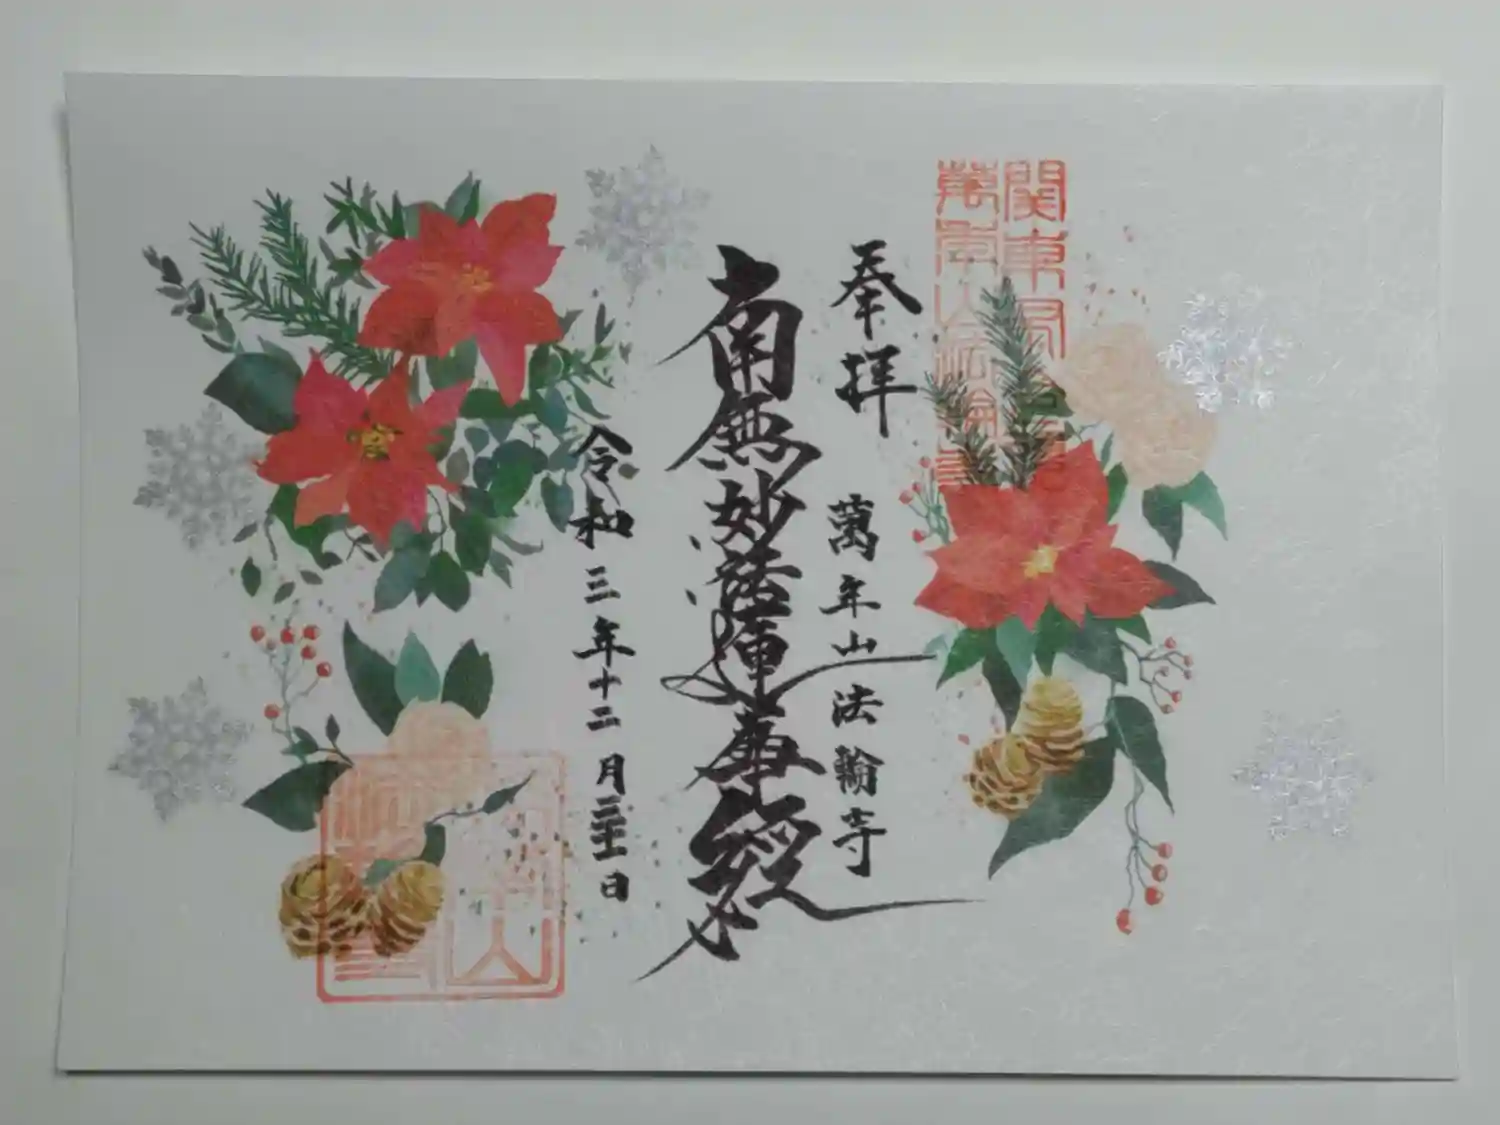 萬年山法輪寺
奉拝
萬年山法輪寺
南無妙法蓮華經
令和三年十二月三十一日